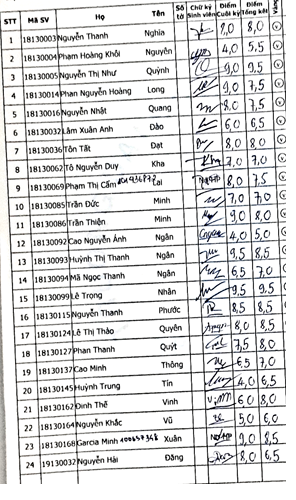 STT Mã SV Họ Tên Số tờ Chữ ký Sinh viên Điểm Cuối kỳ Điểm Tổng kết Vắng
1 18130003 Nguyễn Thanh Nghĩa 8,0
2 18130004 Phạm Hoàng Khôi Nguyên 4,0 5,5
3 18130005 Nguyễn Thị Như Quỳnh 9,0 9,5
4 18130014 Phan Nguyễn Hoàng Long 9,0 7,5
5 18130016 Nguyễn Nhật Quang 8,0 7,5
6 18130032 Lâm Xuân Anh Đào 6,0 6,5
7 18130036 Tôn Tất Đạt 8,0 8,0
8 18130062 Tô Nguyễn Duy Kha 7,0 7,0
9 18130069 Phạm Thị Cẩm Lai 8,0 7,5
10 18130085 Trần Đức Minh 7,0 7,0
11 18130086 Trần Thiện Minh 9,0 8,0
12 18130092 Cao Nguyễn Ánh Ngân 4,0 5,0
13 18130093 Huỳnh Thị Thanh Ngân 9,5 8,5
14 18130094 Mã Ngọc Thanh Ngân 6,5 7,0
15 18130099 Lê Trọng Nhân 9,5 9,5
16 18130115 Nguyễn Thanh Phước 8,5 8,5
17 18130124 Lê Thị Thảo Quyên 8,0 8,5
18 18130127 Phan Thanh Quýt 7,5 8,0
19 18130137 Cao Minh Thông 6,5 7,0
20 18130145 Huỳnh Trung Tín 4,0 6,5
21 18130162 Đinh Thế Vinh 6,0 8,0
22 18130164 Nguyễn Khắc Vũ 5,0 6,0
23 18130168 Garcia Minh Xuân 9,0 8,5
24 19130032 Nguyễn Hải Đăng 8,0 6,5